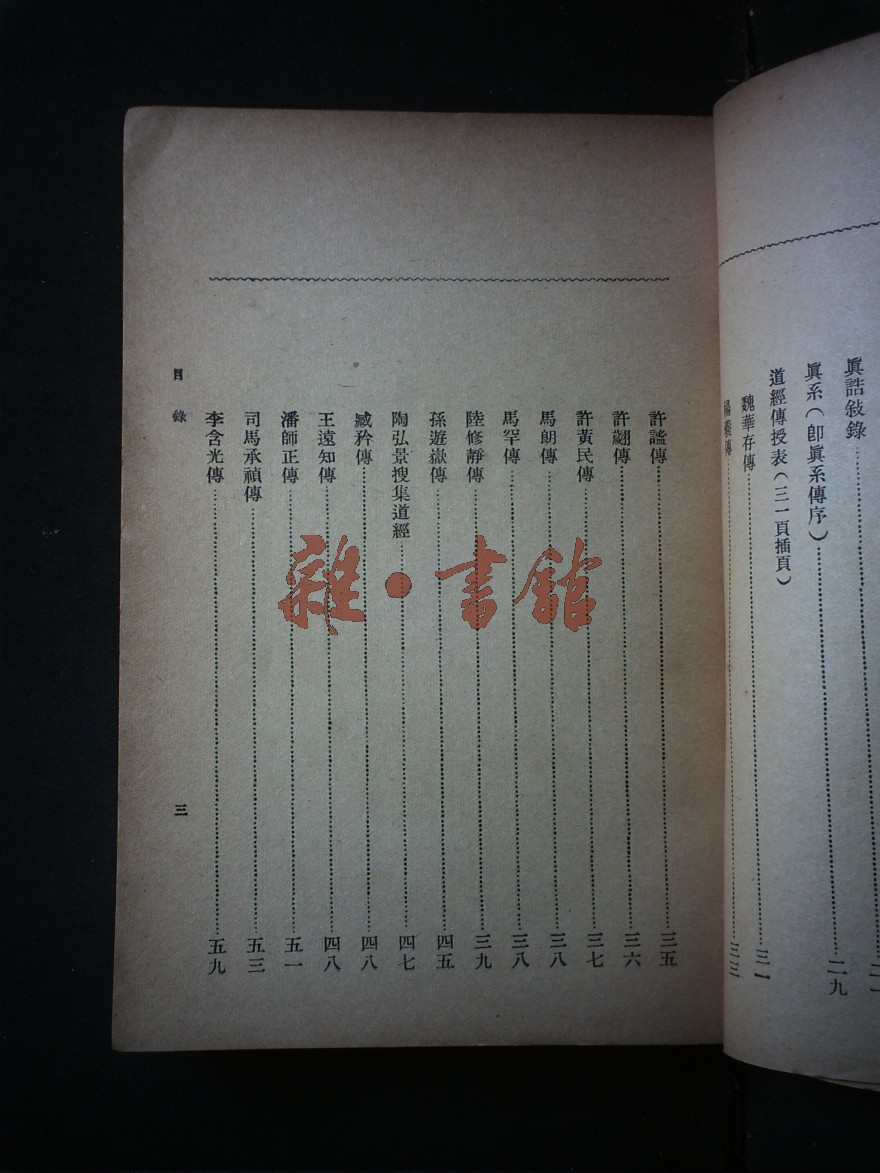 眞誥敍錄
眞系（卽眞系傳序）二九
道經傳授表（三一頁插頁）
魏華存傳三一
楊羲傳三三
許謐傳三五
許翽傳三六
許黃民傳三七
馬朗傳三八
馬罕傳三八
陸修靜傳三九
孫遊嶽傳四五
陶弘景搜集道經四七
臧矜傳四八
王遠知傳四八
潘師正傳五一
司馬承禎傳五三
李含光傳五九
目錄
三
雜·書館